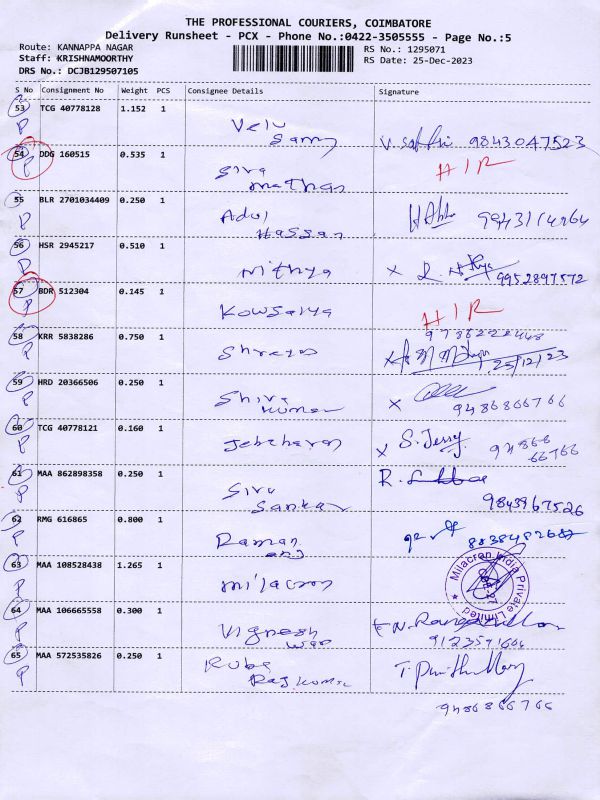 THE PROFESSIONAL COURIERS, COIMBATORE
Delivery Runsheet - PCX - Phone No.:0422-3505555 - Page No.:5
Route: KANNAPPA NAGAR RS No.: 1295071
Staff: KRISHNAMOORTHY RS Date: 25-Dec-2023
DRS No.: DCJB129507105
S No Consignment No Weight PCS Consignee Details Signature
53 TCG 40778128 1.152 1
P Velu
Samy 9843047523
54 DDG 160515 0.535 1
P Siva
mathan H/R
55 BLR 2701034409 0.250 1
P Adul
Hassan
56 HSR 2945217 0.510 1
P Nithya x 9952897572
57 BDR 512304 0.145 1
P Kowsalya H/R
58 KRR 5838286 0.750 1
P 25/12/23
59 HRD 20366506 0.250 1
P Shiva
Kumar x 9486866766
60 TCG 40778121 0.160 1
P Jebcharan x S. Jerry 94868
66766
61 MAA 862898358 0.250 1
P Siva
Sankar 9843967526
62 RMG 616865 0.800 1
P Raman
63 MAA 108528438 1.265 1
P Milacron Milacron India Private Limited
64 MAA 106665558 0.300 1
P Vignesh
65 MAA 572535826 0.250 1
P Ruba
Rajkumar
9486866766